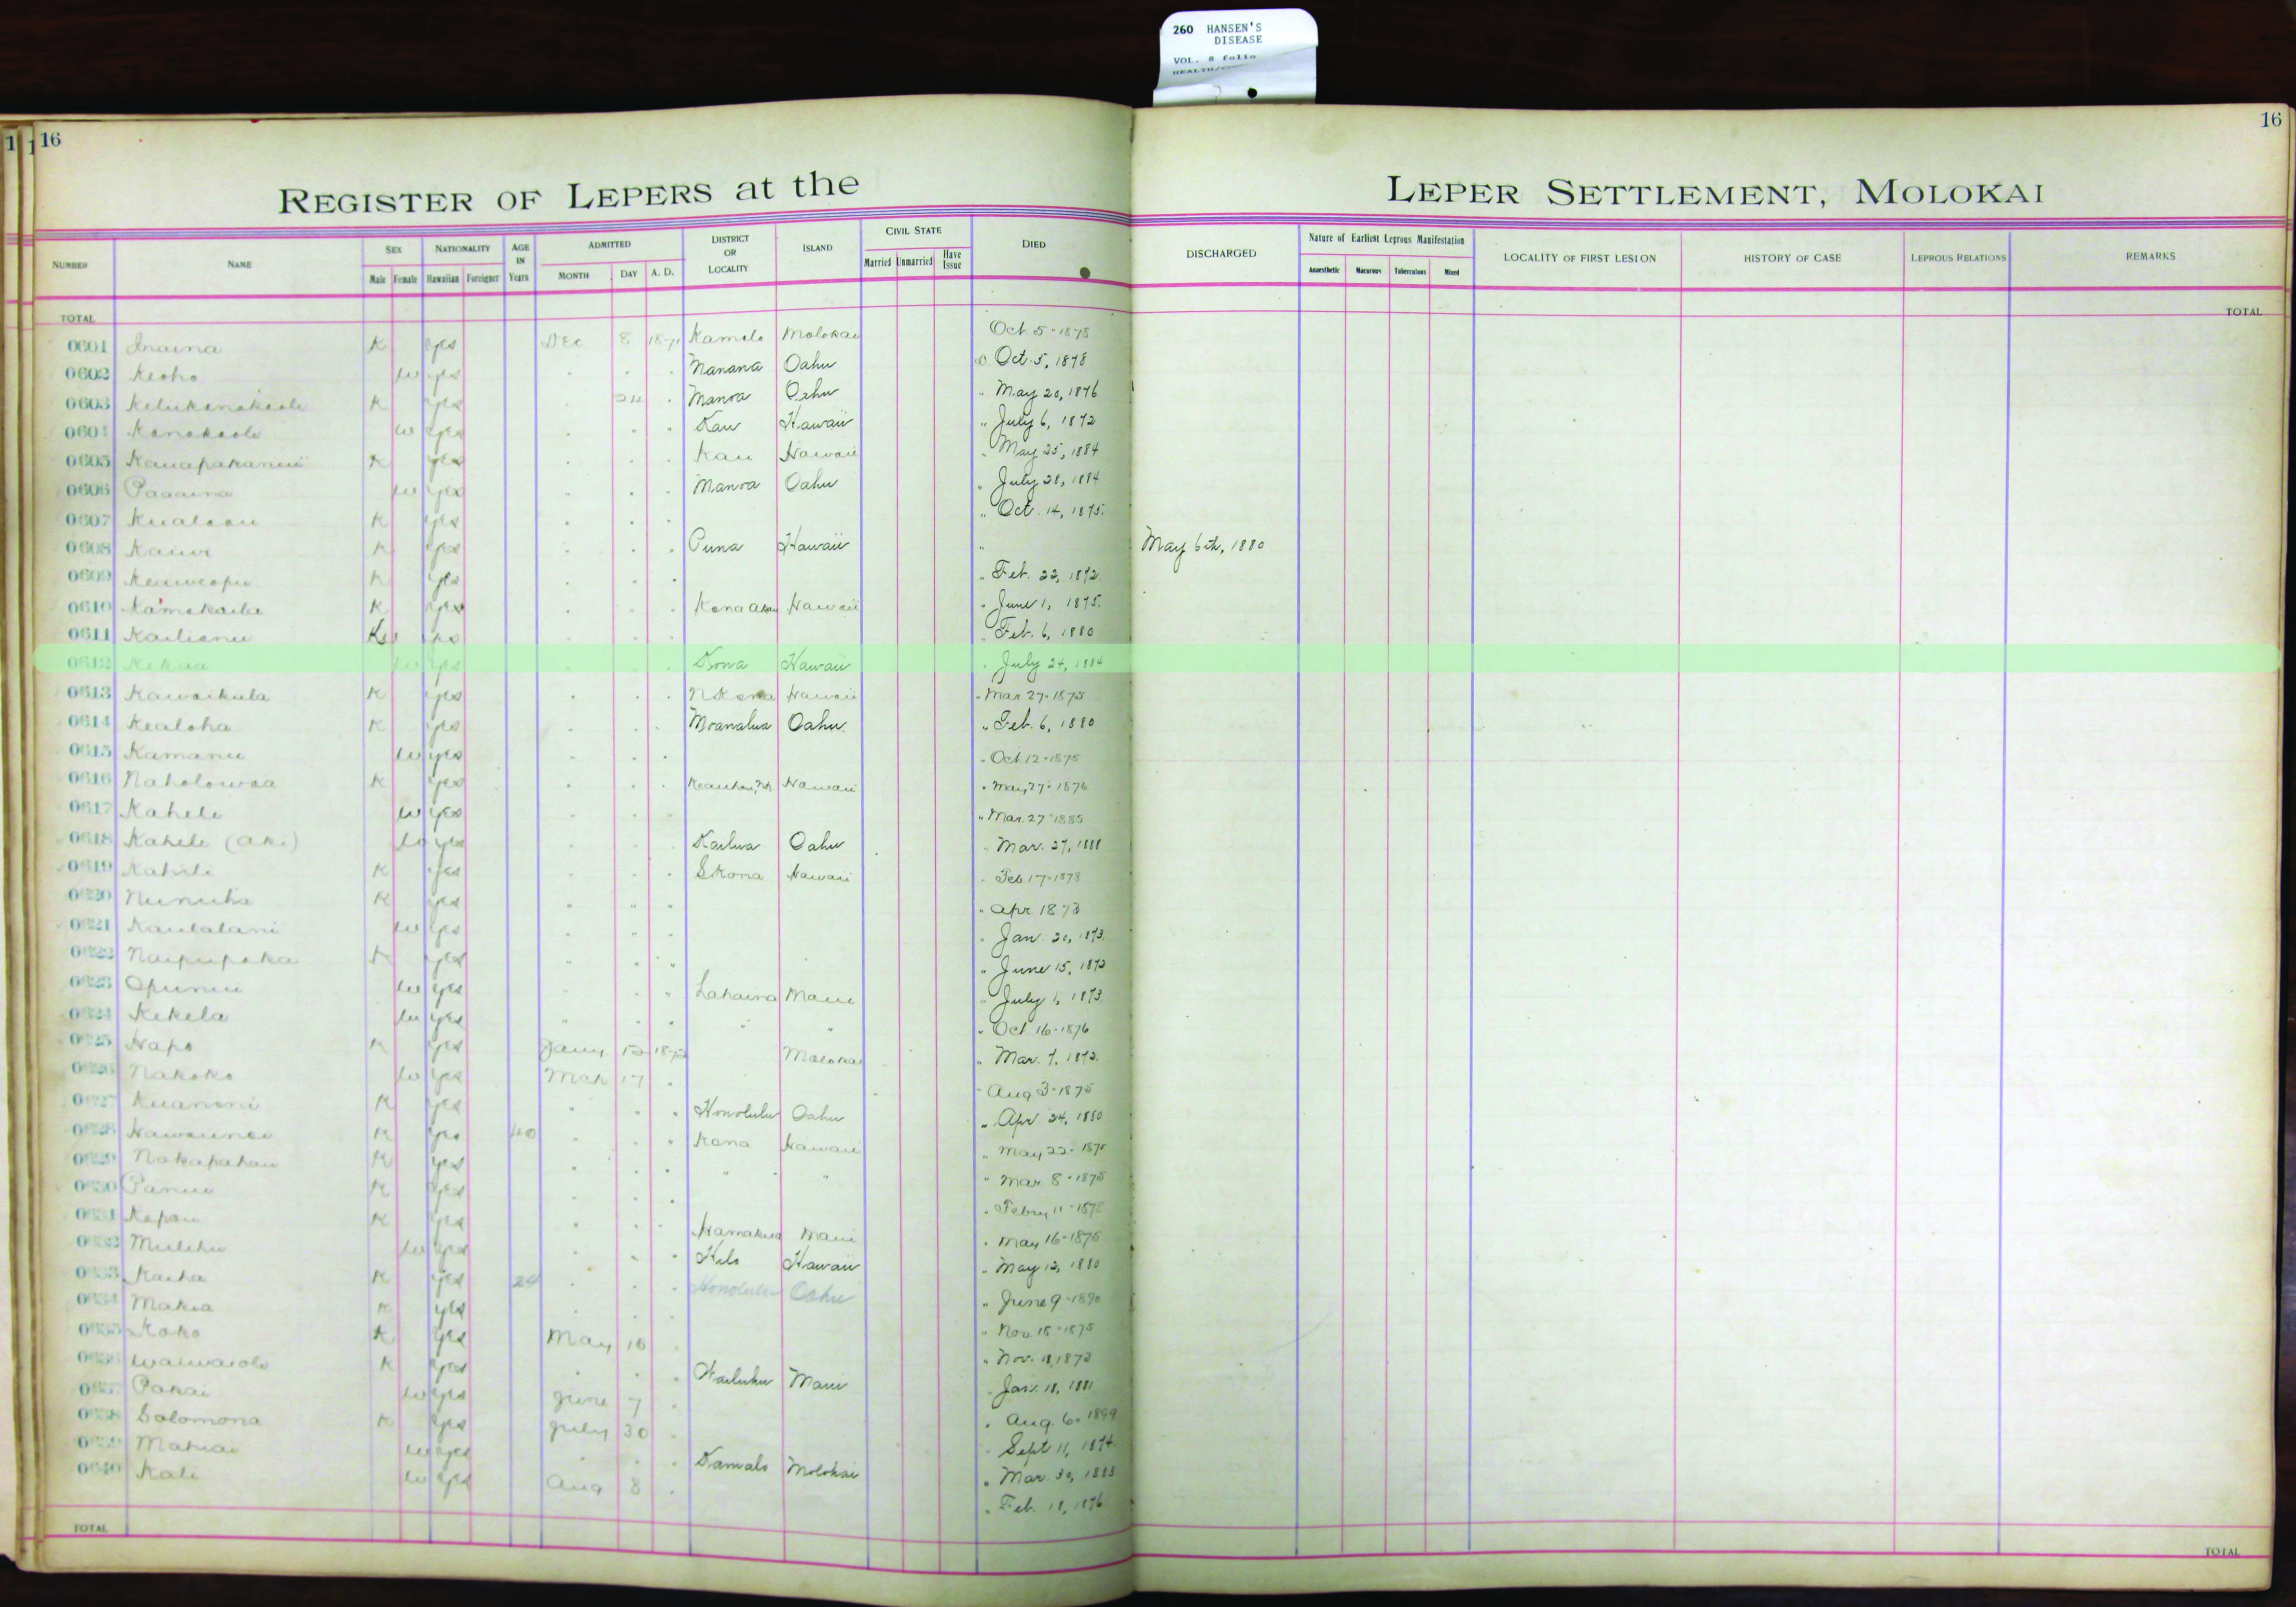 260 HANSEN'S
DISEASE
VOL. 8 folio
16
16
REGISTER OF LEPERS at the LEPER SETTLEMENT, MOLOKAI
NUMBER NAME SEX NATIONALITY AGE IN Years ADMITTED DISTRICT OR LOCALITY ISLAND CIVIL STATE DIED DISCHARGED Nature of Earliest Leprous Manifestation LOCALITY OF FIRST LESION HISTORY OF CASE LEPROUS RELATIONS REMARKS
Male Female Hawaiian Foreigner MONTH DAY A. D. Married Unmarried Have Issue Anaesthetic Macurous Tuberculous Mixed
TOTAL TOTAL
0601 Inaina K yes Dec 8 Kamalo Molokai Oct 5-1878
0602 Keoho w yes " " " Manana Oahu D Oct. 5, 1878
0603 K yes " 24 " Manoa Oahu " May 20, 1876
0604 Kanakaole w yes " " " Kau Hawaii " July 6, 1872
0605 K yes " " " Kau Hawaii " May 25, 1884
0606 Paaaina w yes " " " Manoa Oahu " July 28, 1884
0607 Kualaau K yes " " " " Oct. 14, 1875.
0608 Kauwi K yes " " " Puna Hawaii " May 6th, 1880
0609 Keaweopu K yes " " " " Feb. 22, 1872.
0610 Kamakaila K yes " " " Kona Akau Hawaii " June 1, 1875.
0611 Kailianu yes " " " " Feb. 6, 1880
0612 Kekaa w yes " " " Kona Hawaii " July 24, 1884
0613 Kawaikula K yes " " " N Kona Hawaii " Mar 27-1875
0614 Kealoha K yes " " " Moanalua Oahu " Feb. 6, 1880
0615 Kamanu w yes " " " " Oct 12-1875
0616 Naholowaa K yes " " " Hawaii " May 27-1876
0617 Kahele w yes " " " " Mar. 27-1885
0618 Kahele (Aki) w yes " " " Kailua Oahu " Mar. 27, 1888
0619 Kahili K yes " " " S Kona Hawaii " Feb. 17-1878
0620 Nunuha K yes " " " " Apr 1873
0621 Kaulalani w yes " " " " Jan. 20, 1873.
0622 Naipupaka K yes " " " " June 15, 1873
0623 Opunui w yes " " " Lahaina Maui " July 1, 1873.
0624 Kekela w yes " " " " " " Oct 16-1876
Hapo K yes Jany Molokai " Mar. 7, 1873.
Nakoko w yes Mch 17 " " Aug 3-1875
Kuanoni K yes " " " Honolulu Oahu " Apr. 24, 1880
K yes 40 " " " Kona Hawaii " May 22-1875
Nakapahau K yes " " " " " " Mar. 8-1875
Panui K yes " " " " Febry 11-1878
Kepau K yes " " " Hamakua Maui " May 16-1875
Mulehu w yes " " " Hilo Hawaii " May 12, 1880
Kaiha K yes 24 " " " Honolulu Oahu " June 9-1890
Makia K yes " " " " Nov. 18-1875
Koko K yes May 18 " " Nov. 11, 1873
Waiwaiole K yes " " " Wailuku Maui " Jan. 18, 1881
Pakai w yes June 7 " " Aug. 6-1899
Solomona K yes July 30 " " Sept 11, 1874
Mahiai w yes " " " Kamalo Molokai " Mar. 30, 1883
0640 Kali w yes Aug 8 " " Feb. 18, 1876
TOTAL TOTAL